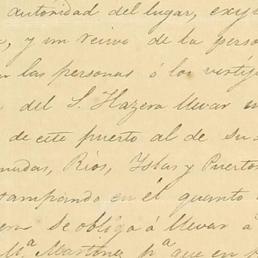 autoridad del lugar, exij
, y un recivo de la perso
n las personas ó los vestij
del S. Hazera llevar
de este puerto al de su
nudas, Rios, Yslas y Puerto
tampando en él quanto
era se obliga á llevar á
M.ª Martonez p.ª que en p